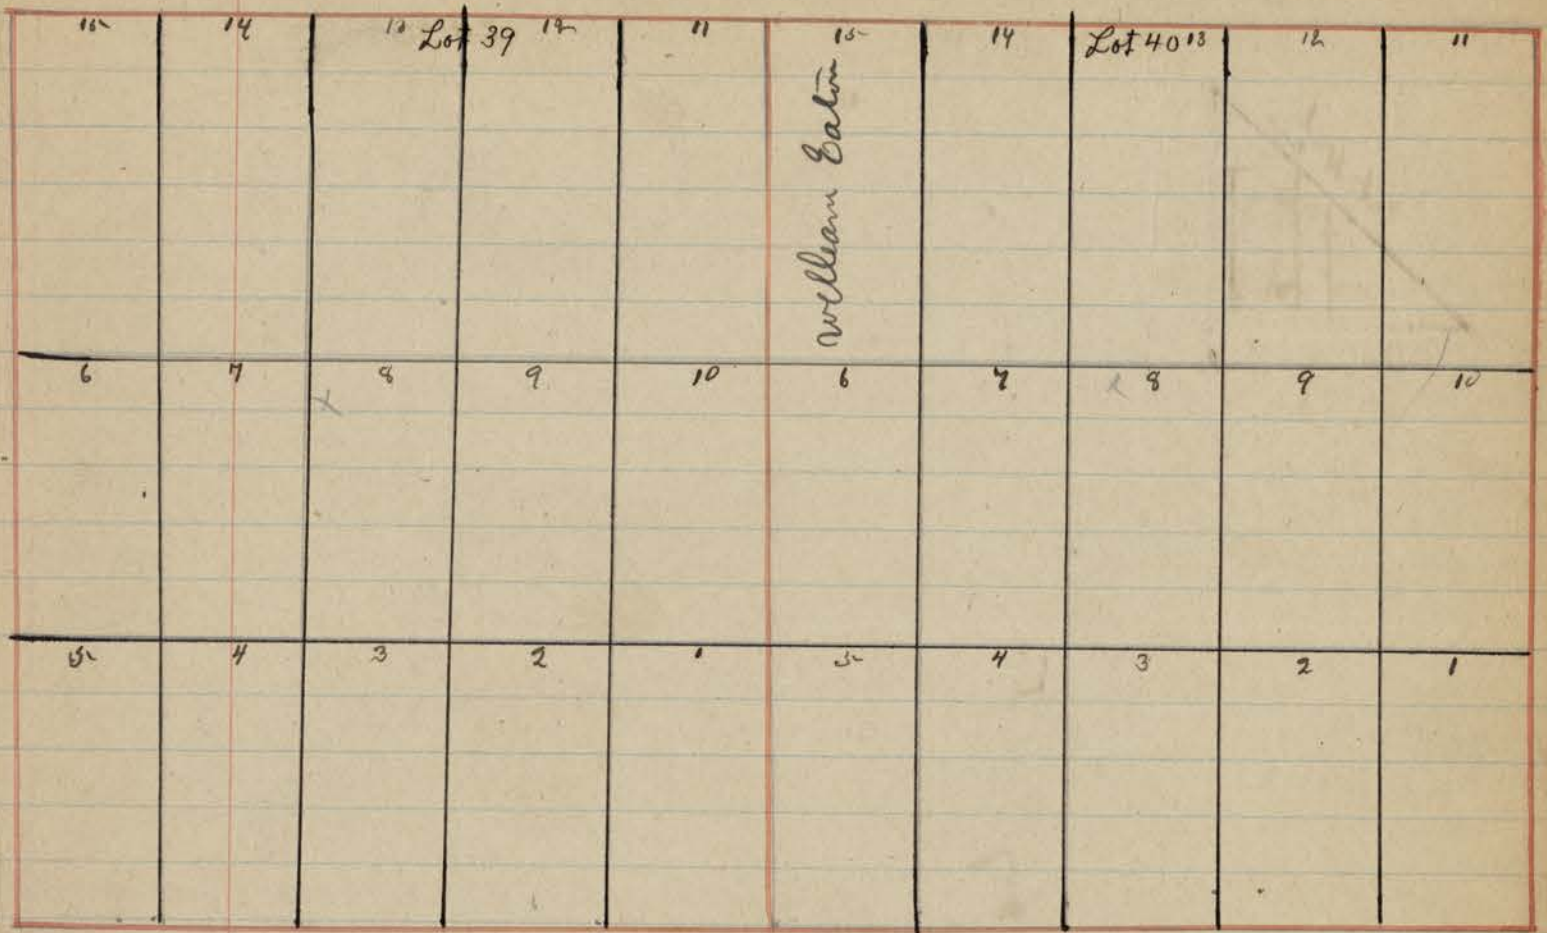 15 14 13 Lot 39 12 11 15 14 Lot 40 13 12 11
William Eaton
6 7 8 9 10 6 7 8 9 10
5 4 3 2 1 5 4 3 2 1